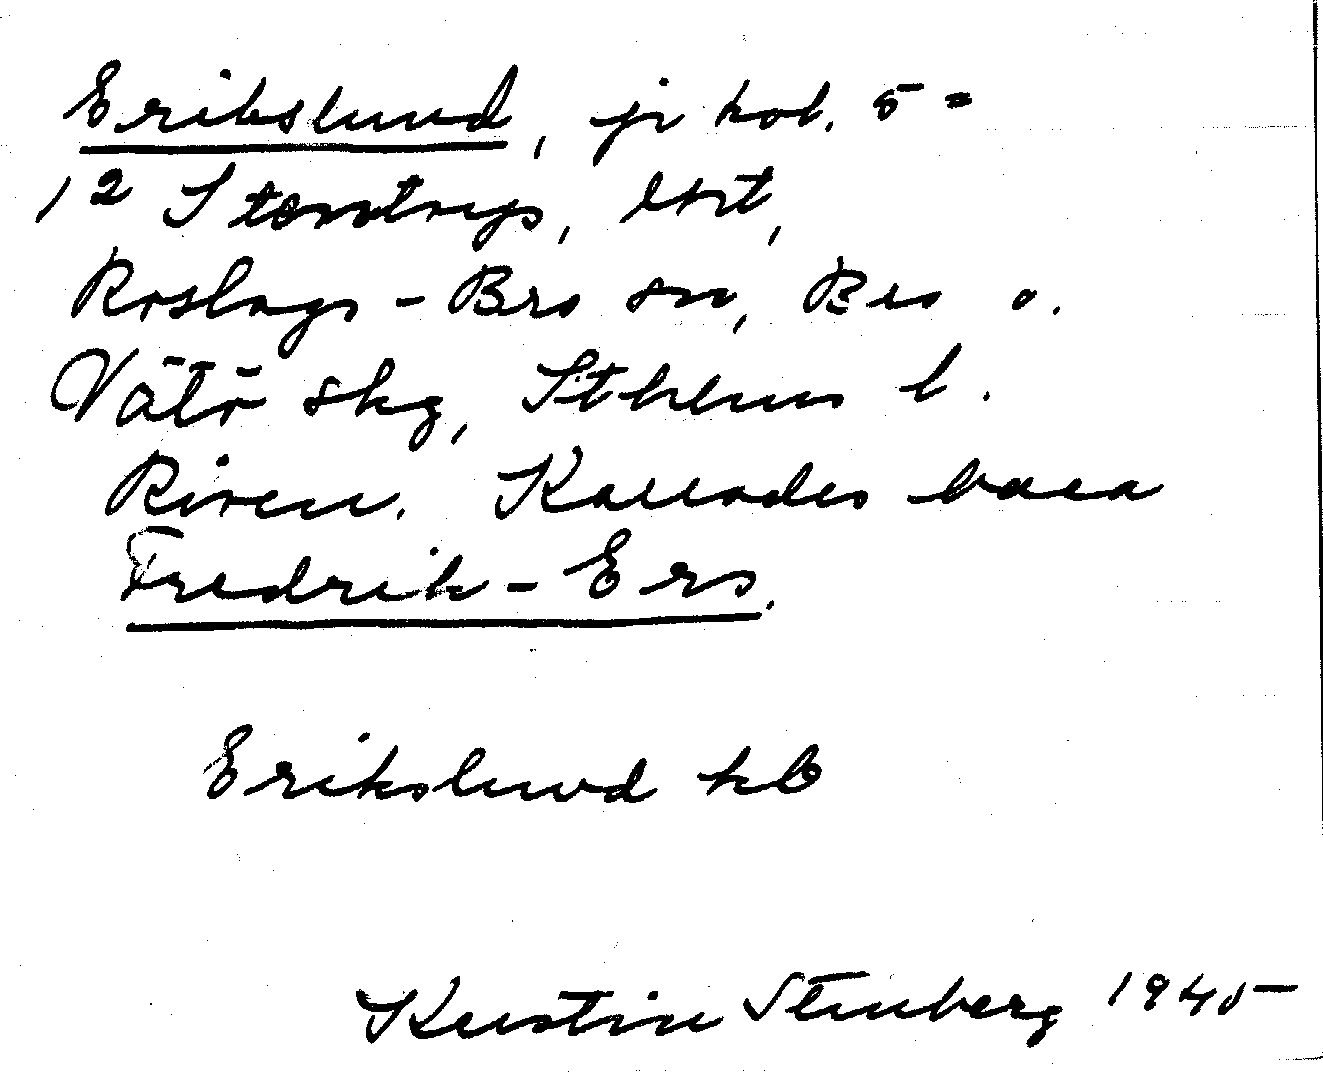 Erikslund, jr kol. 5 =
1² Stomtrys, lht,
Roslags-Bro sn, Bro o.
Vätö skg, Sthlms l.
Riven. Kallades bara
Fredrik-Ers.
Erikslund kb
Kerstin Stenberg 1945